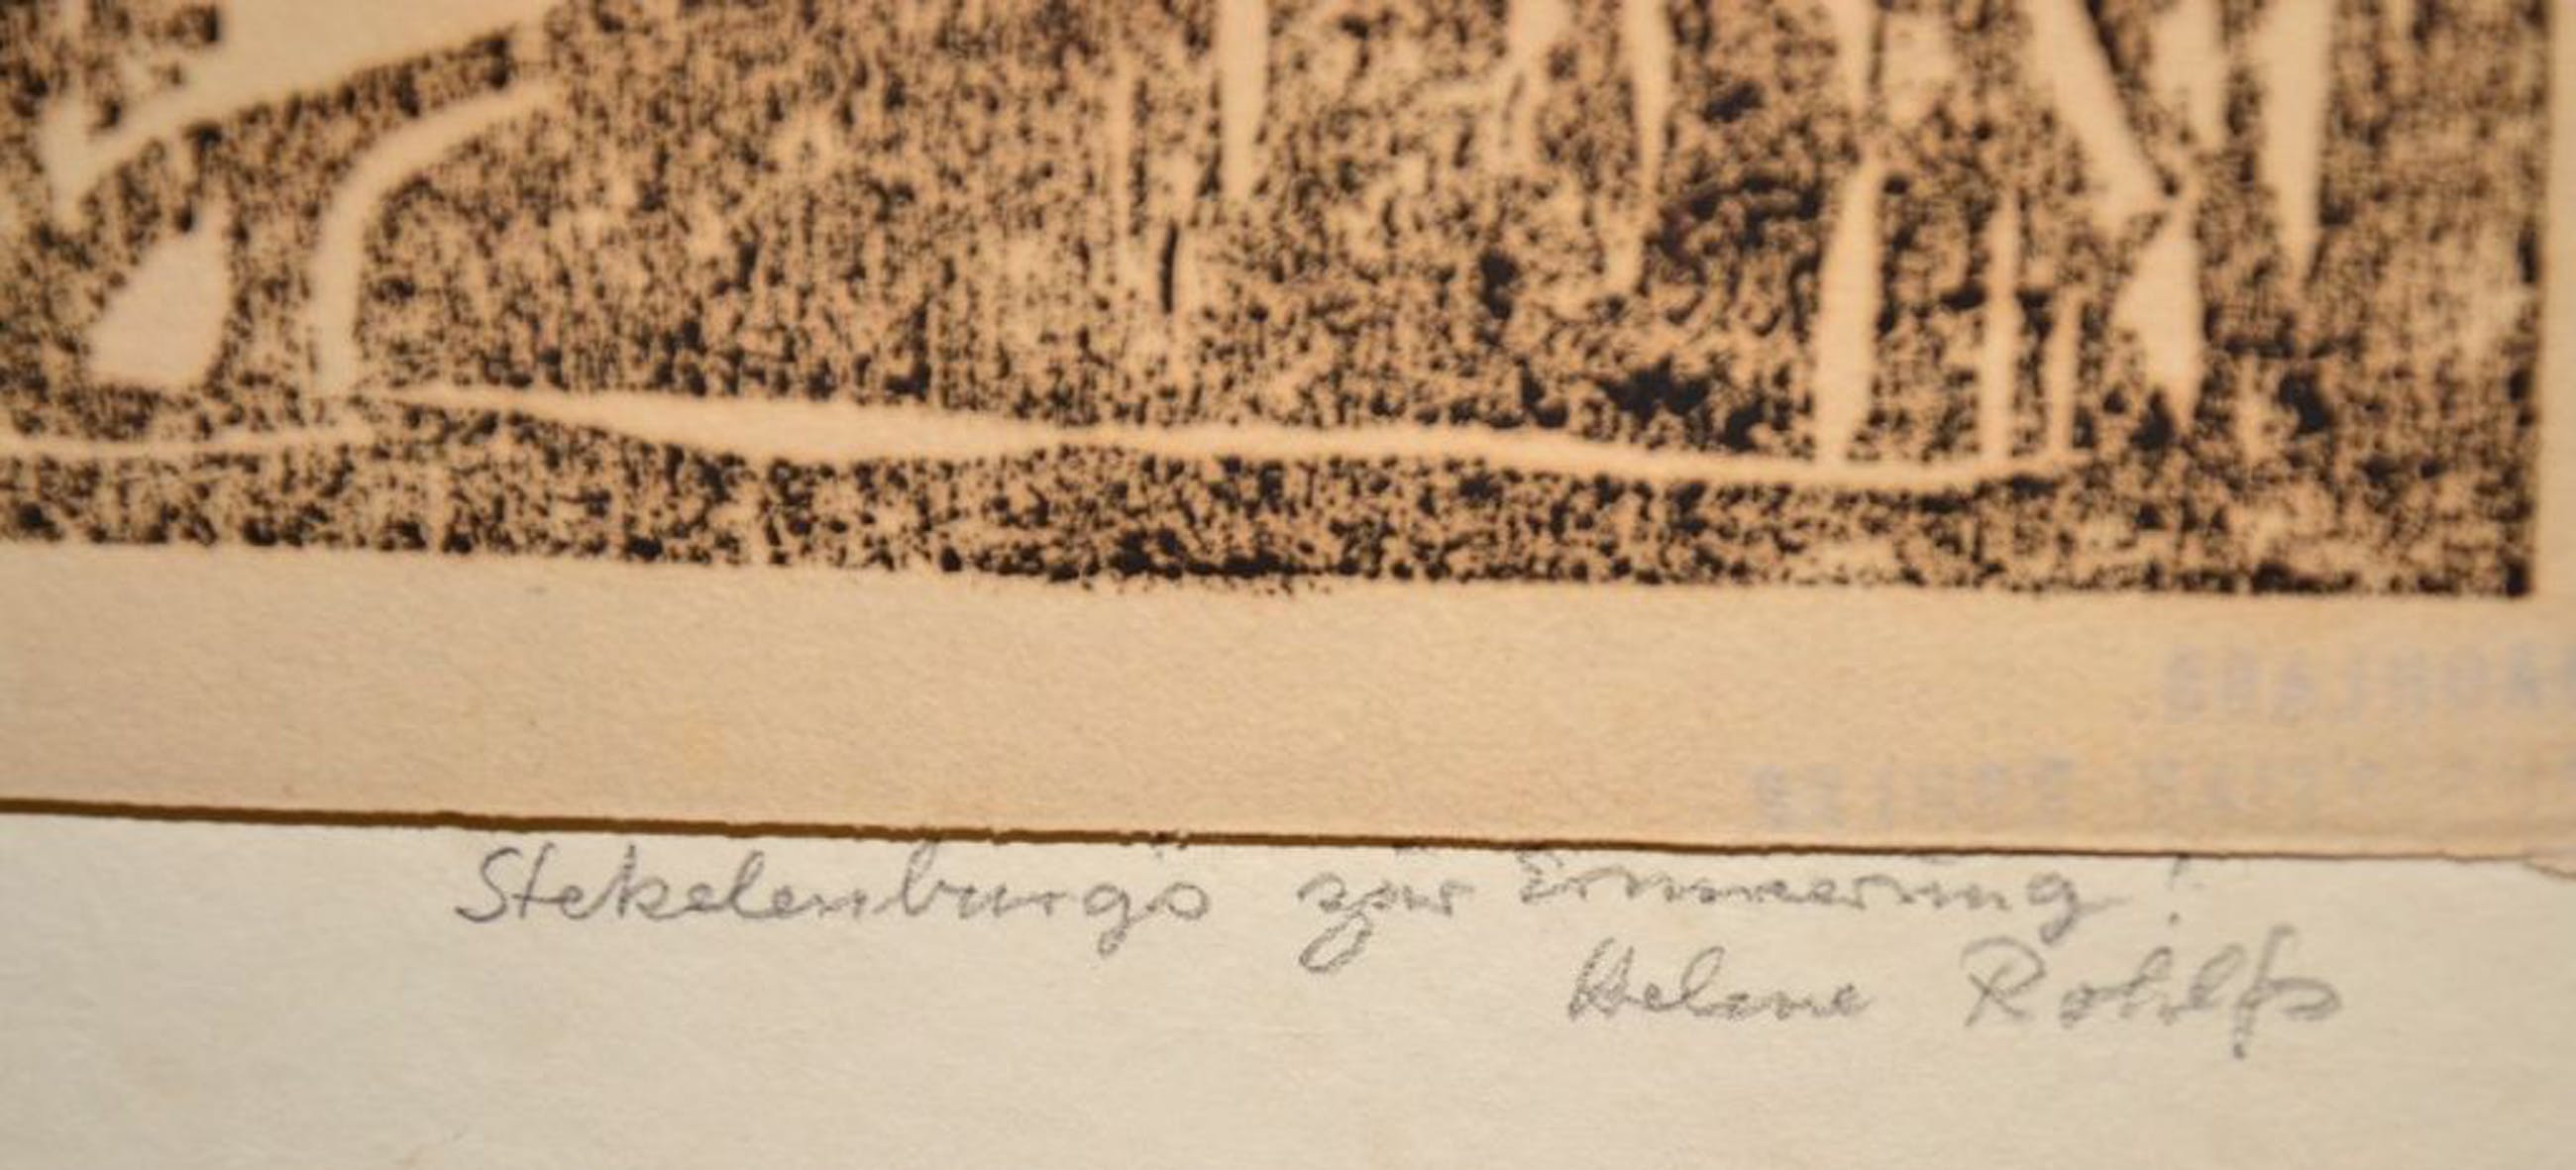 Stekelenburgs zur Erinnerung!
Helene Rohlfs